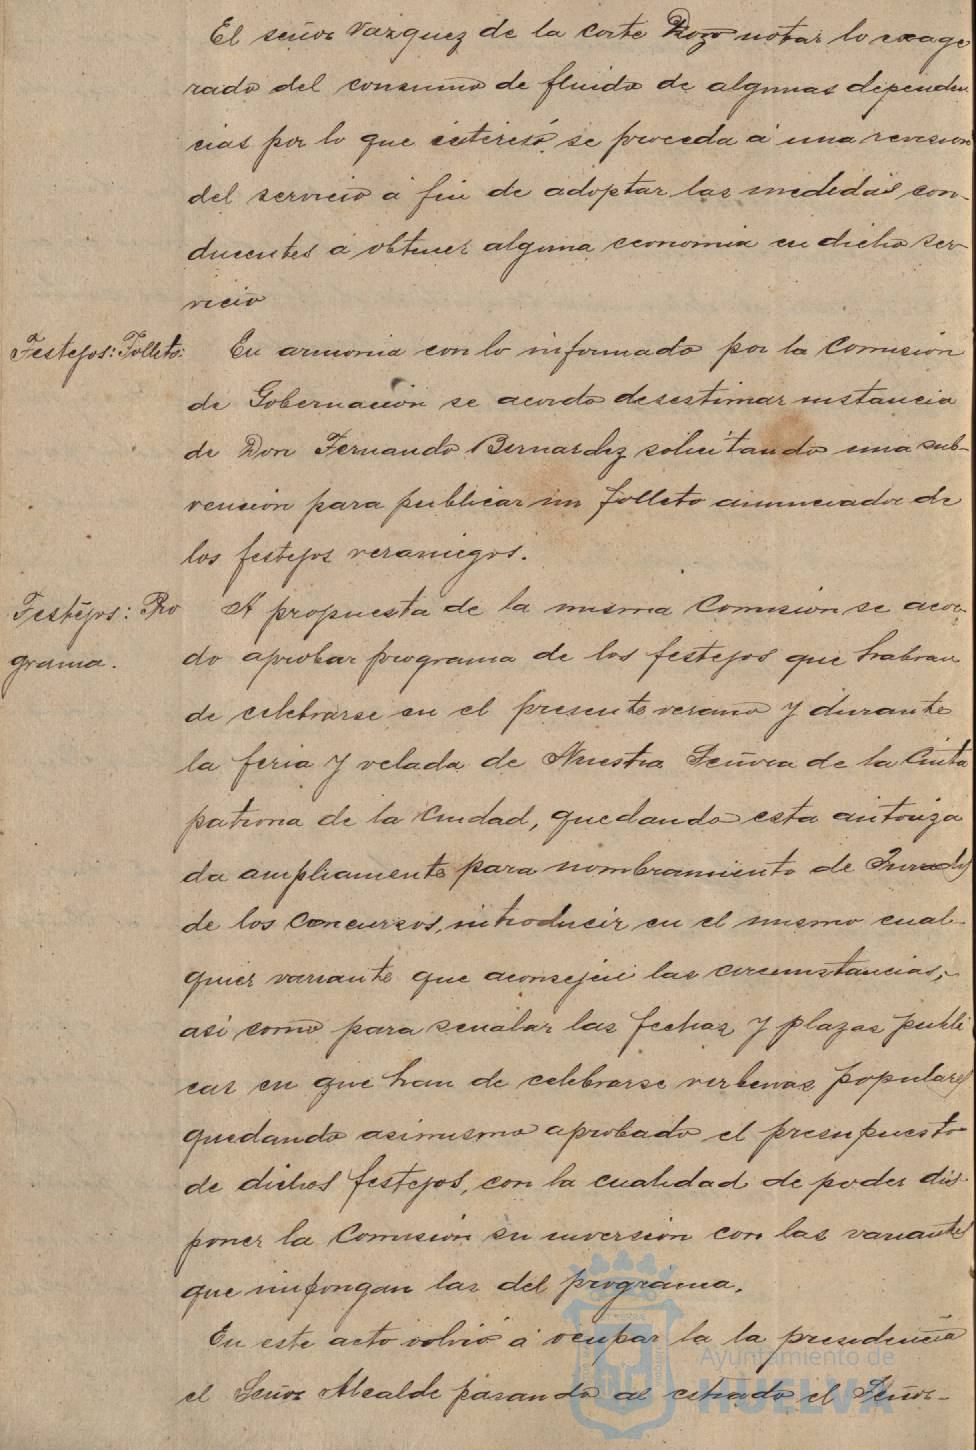 El señor Vazquez de la Corte Pozo notar lo exage
rado del consumo de fluido de algunas dependen
cias por lo que interesó se proceda á una revision
del servicio á fin de adoptar las medidas con-
ducentes á obtener alguna economia en dicho ser-
vicio
Festejos: Folleto: En armonia con lo informado por la Comision
de Gobernación se acordo desestimar instancia
de Don Fernando Bernardez solicitando una sub-
vención para publicar un folleto anunciador de
los festejos veraniegos.
Festejos: Pro A propuesta de la misma Comision se acor-
grama. do aprobar programa de los festejos que habran
de celebrarse en el presente verano y durante
la feria y velada de Nuestra Señora de la Cinta
patrona de la Ciudad, quedando esta autoriza
da ampliamente para nombramiento de Jurados
de los Concursos, introducir en el mismo cual-
quier variante que aconsejen las circunstancias,
asi como para señalar las fechas y plazas publi
cas en que han de celebrarse verbenas populares
quedando asimismo aprobado el presupuesto
de dichos festejos, con la cualidad de poder dis-
poner la Comision su inversion con las variantes
que impongan las del programa.
En este acto volvió á ocupar la la presidencia
el Señor Alcalde pasando al estrado el Señor-
Ayuntamiento de
HUELVA